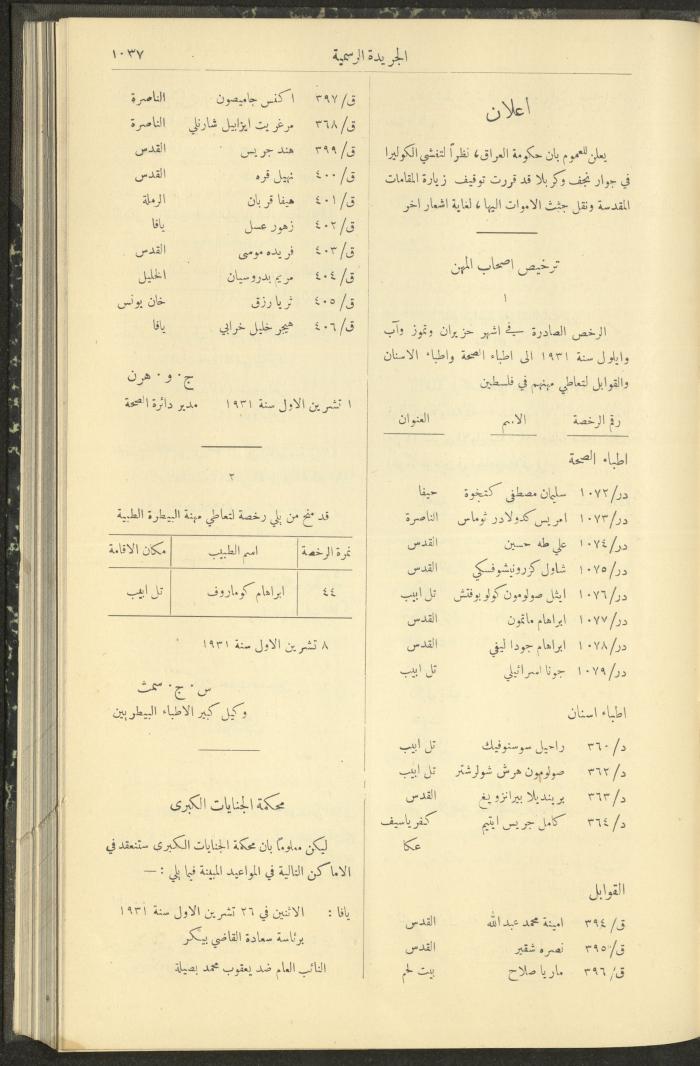 الجريدة الرسمية
١٠٣٧
اعلان
يعلن للعموم بان حكومة العراق، نظراً لتفشي الكوليرا
في جوار نجف وكربلا قد قررت توقيف زيارة المقامات
المقدسة ونقل جثث الاموات اليها، لغاية اشعار اخر
ترخيص اصحاب المهن
١
الرخص الصادرة في اشهر حزيران وتموز وآب
وايلول سنة ١٩٣١ الى اطباء الصحة واطباء الاسنان
والقوابل لتعاطي مهنهم في فلسطين
رقم الرخصة الاسم العنوان
اطباء الصحة
در/١٠٧٢ سليمان مصطفى كتخوة حيفا
در/١٠٧٣ امريس كدولادر ثوماس الناصرة
در/١٠٧٤ علي طه حسين القدس
در/١٠٧٥ شاول كزرونيشوفسكي القدس
در/١٠٧٦ ايثل صولومون كولوبوفتش تل ابيب
در/١٠٧٧ ابراهام ماتمون القدس
در/١٠٧٨ ابراهام جودا ليفي القدس
در/١٠٧٩ جونا اسرائيلي تل ابيب
اطباء اسنان
د/٣٦٠ راحيل سوسنوفيك تل ابيب
د/٣٦٢ صولومون هرش شولرشتر تل ابيب
د/٣٦٣ برينديلا بيرانزويغ القدس
د/٣٦٤ كامل جريس ايتيم كفرياسيف
عكا
القوابل
ق/٣٩٤ امينة محمد عبد الله القدس
ق/٣٩٥ نصره شقير القدس
ق/٣٩٦ ماريا صلاح بيت لحم
ق/٣٩٧ اكنس جاميصون الناصرة
ق/٣٦٨ مرغريت ايزابيل شارنلي الناصرة
ق/٣٩٩ هند جريس القدس
ق/٤٠٠ نهيل قره القدس
ق/٤٠١ هيفا قربان الرملة
ق/٤٠٢ زهور عسل يافا
ق/٤٠٣ فريده موسى القدس
ق/٤٠٤ مريم بدروسيان الخليل
ق/٤٠٥ ثريا رزق خان يونس
ق/٤٠٦ هيجر خليل خرابي يافا
ج. و. هرن
١ تشرين الاول سنة ١٩٣١ مدير دائرة الصحة
٢
قد منح من يلي رخصة لتعاطي مهنة البيطرة الطبية
نمرة الرخصة اسم الطبيب مكان الاقامة
٤٤ ابراهام كوماروف تل ابيب
٨ تشرين الاول سنة ١٩٣١
س. ج. سمث
وكيل كبير الاطباء البيطريين
محكمة الجنايات الكبرى
ليكن معلوماً بان محكمة الجنايات الكبرى ستنعقد في
الاماكن التالية في المواعيد المبينة فيما يلي :—
يافا : الاثنين في ٢٦ تشرين الاول سنة ١٩٣١
برئاسة سعادة القاضي بيكر
النائب العام ضد يعقوب محمد بصيلة